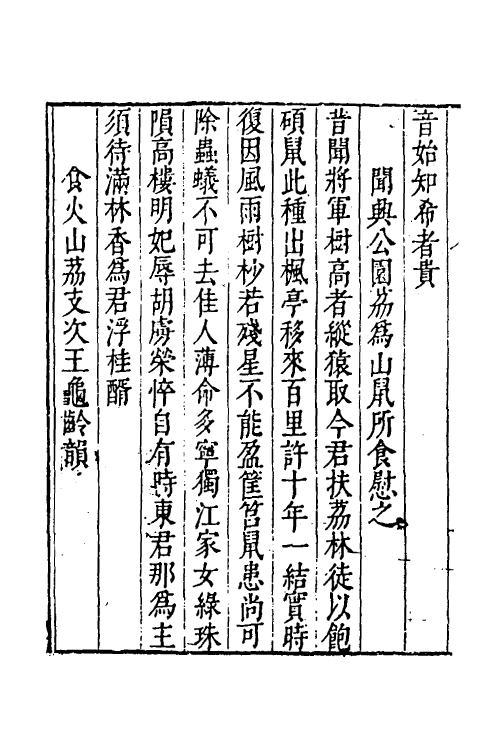 音始知希者貴
聞興公園荔爲山鼠所食慰之
昔聞將軍樹高者縱猿取今君扶荔林徒以飽
碩鼠此種出楓亭移來百里許十年一結實時
復因風雨樹杪若殘星不能盈筐筥鼠患尚可
除蟲蟻不可去佳人薄命多寧獨江家女綠珠
隕高樓明妃辱胡虜榮悴自有時東君那爲主
須待滿林香爲君浮桂醑
食火山荔支次王龜齡韻